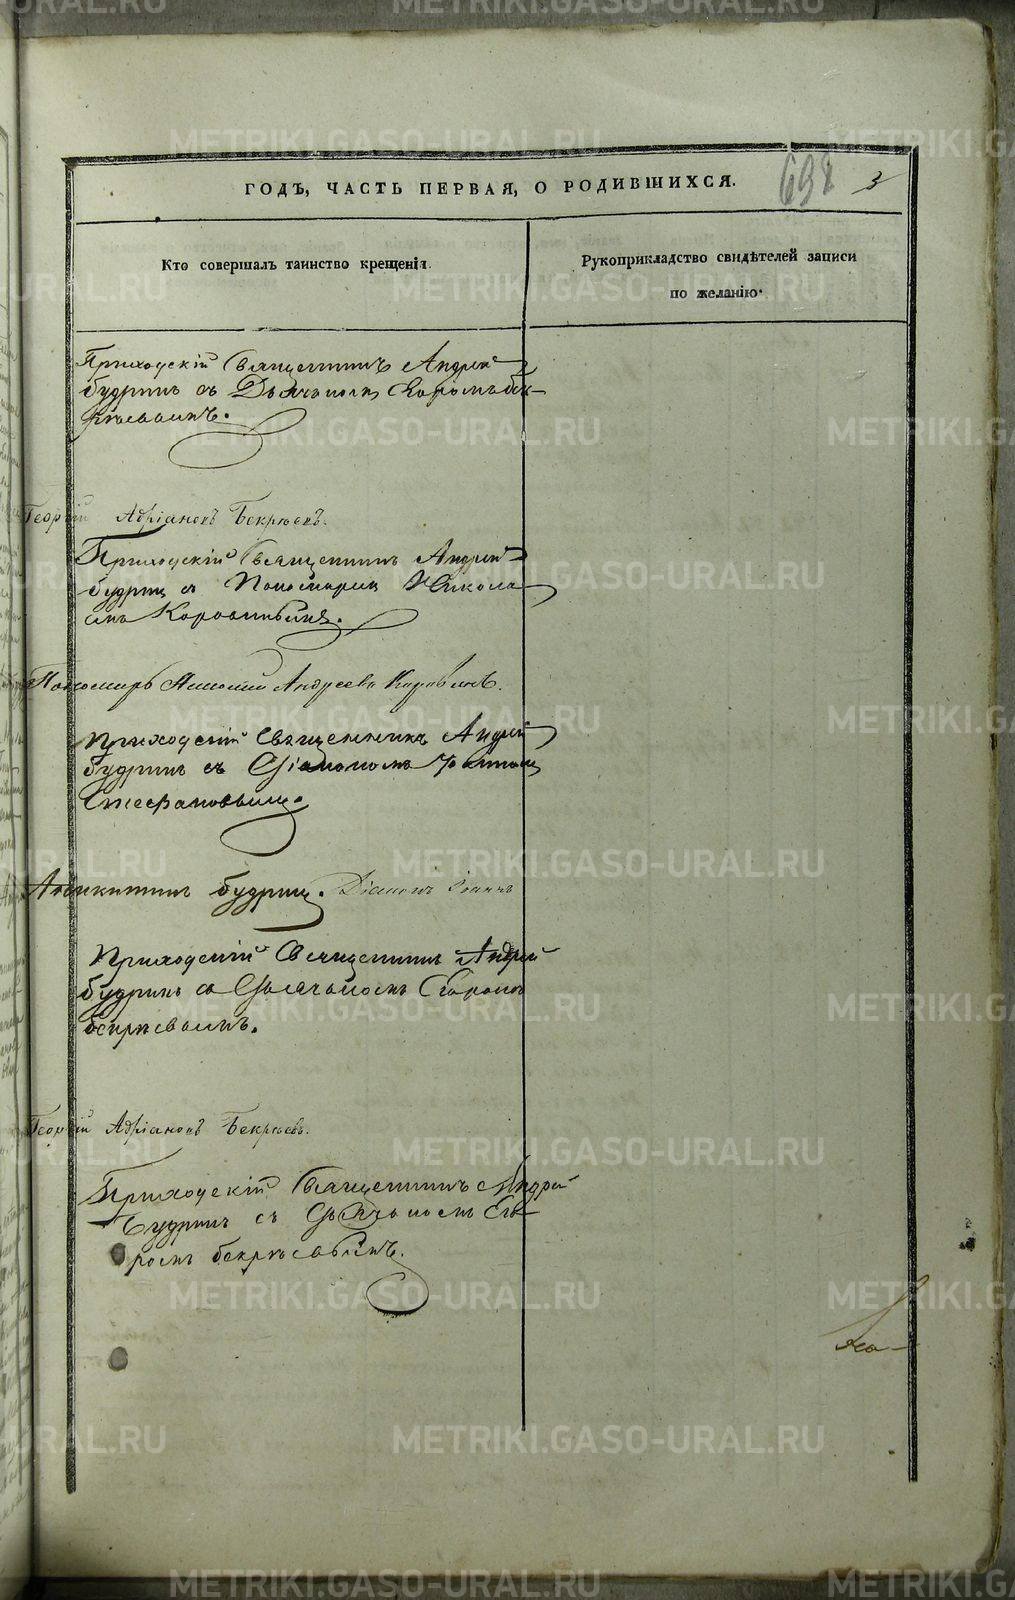 METRIKI.GASO-URAL.RU
698 3
ГОДЪ, ЧАСТЬ ПЕРВАЯ, О РОДИВШИХСЯ.
Кто совершалъ таинство крещенія.
Рукоприкладство свидѣтелей записи
по желанію.
Приходскій Священникъ Андрей
Будринъ съ Дьячкомъ
Георгій Адріановъ Бекрѣевъ.
Приходскій Священникъ Андрей
Будринъ съ Пономаремъ Никола
емъ
Пономарь Андреевъ
Приходскій Священникъ Андрей
Будринъ съ Діакономъ Іоанномъ
Стефановымъ.
Будринъ. Діаконъ Іоаннъ
Приходскій Священникъ Андрей
Будринъ съ Дьячкомъ Егоромъ
Бекрѣевымъ.
Георгій Адріановъ Бекрѣевъ.
Приходскій Священникъ Андрей
Будринъ съ Дьячкомъ Его
ромъ Бекрѣевымъ.